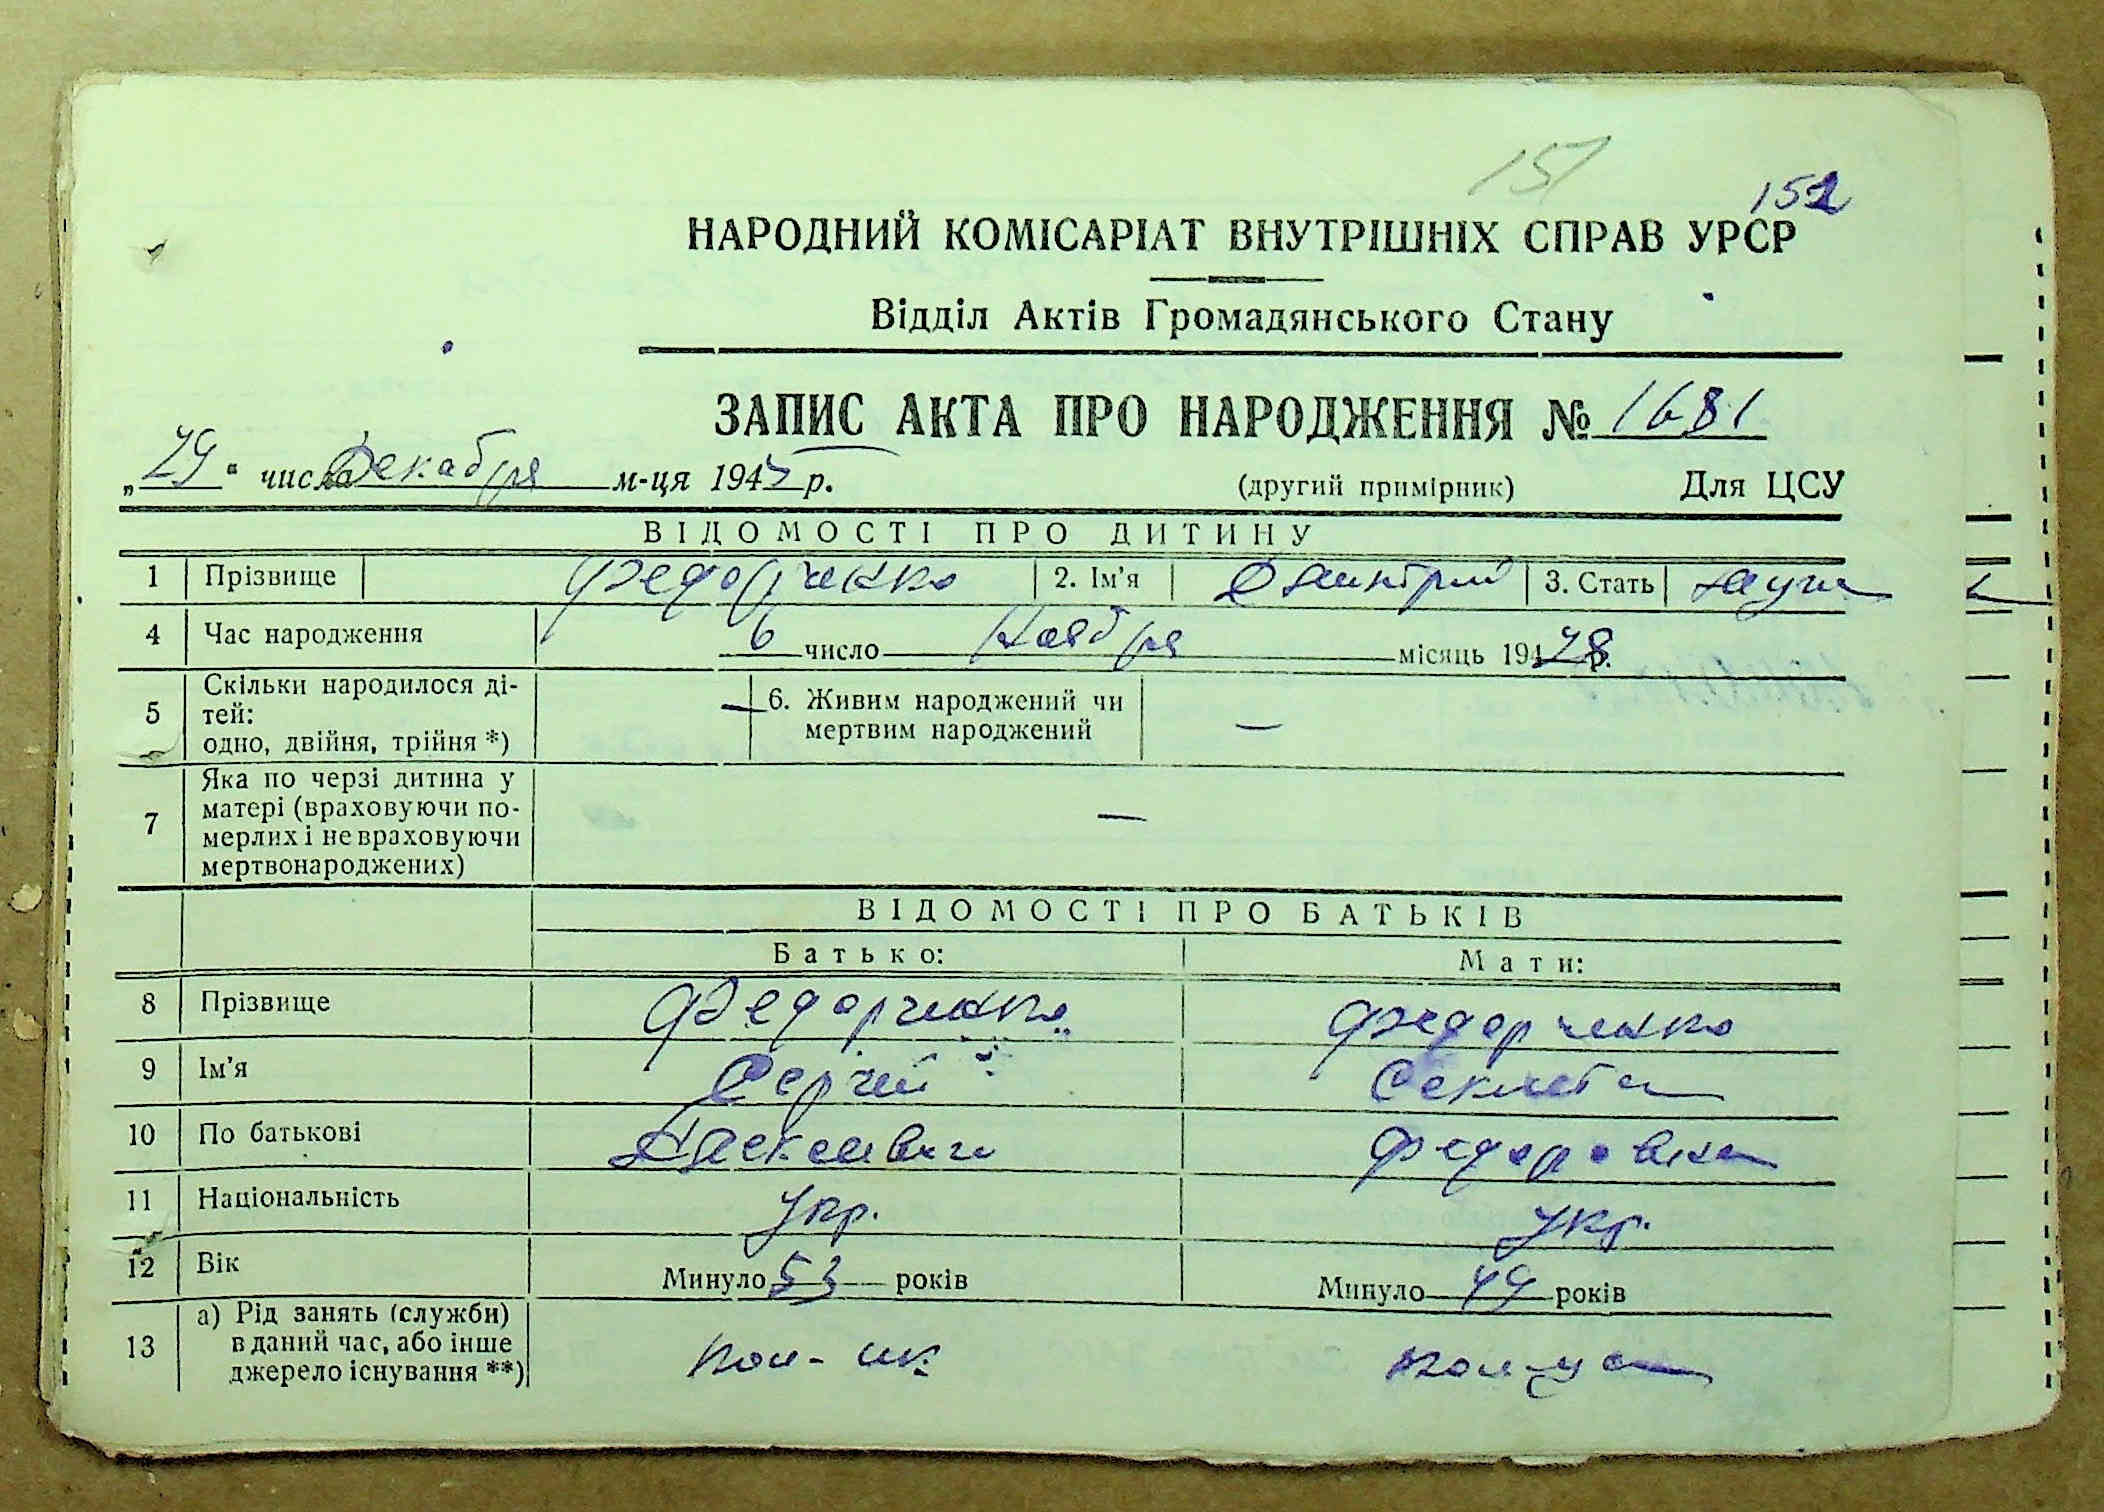 151
152
НАРОДНИЙ КОМІСАРІАТ ВНУТРІШНІХ СПРАВ УРСР
Відділ Актів Громадянського Стану
ЗАПИС АКТА ПРО НАРОДЖЕННЯ № 1681
„29“ числа Декабря м-ця 1947 р. (другий примірник) Для ЦСУ
ВІДОМОСТІ ПРО ДИТИНУ
1 Прізвище Федорченко 2. Ім'я Дмитрий 3. Стать
4 Час народження 6 число Ноября місяць 1928 р.
5 Скільки народилося ді-
тей:
одно, двійня, трійня *) — 6. Живим народжений чи
мертвим народжений —
7 Яка по черзі дитина у
матері (враховуючи по-
мерлих і не враховуючи
мертвонароджених) —
ВІДОМОСТІ ПРО БАТЬКІВ
Батько: Мати:
8 Прізвище Федорченко Федорченко
9 Ім'я Сергій Секлета
10 По батькові Алексеевич Федоровна
11 Національність Укр. Укр.
12 Вік Минуло 53 років Минуло 49 років
13 а) Рід занять (служби)
в даний час, або інше
джерело існування **) кол-ик кол-ца